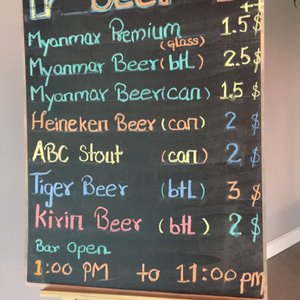 Beer
++
Myanmar Premium 1.5 $
(glass)
Myanmar Beer (btl) 2.5 $
Myanmar Beer (can) 1.5 $
Heineken Beer (can) 2 $
ABC Stout (can) 2 $
Tiger Beer (btl) 3 $
Kirin Beer (btl) 2 $
Bar Open
1:00 PM to 11:00 pm